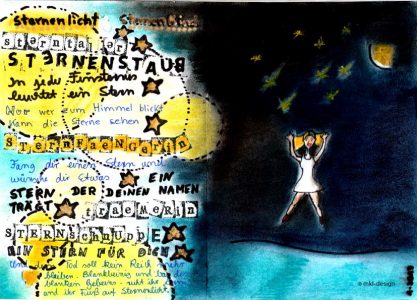 sternenlicht sternenlicht
sterntaler
STERNENSTAUB
In jeder Finsternis
leuchtet ein Stern
Nur wer zum Himmel blickt
kann die Sterne sehen
STERNFAENGERIN
Fang dir einen Stern und
wünsche dir Etwas EIN
STERN DER DEINEN NAMEN
TRÄGT traeumerin
STERNSCHNUPPE
EIN STERN FÜR DICH
Und der Tod soll kein Reich mehr
bleiben
und ihr Fuß auf Sternenlicht
© mkl-design